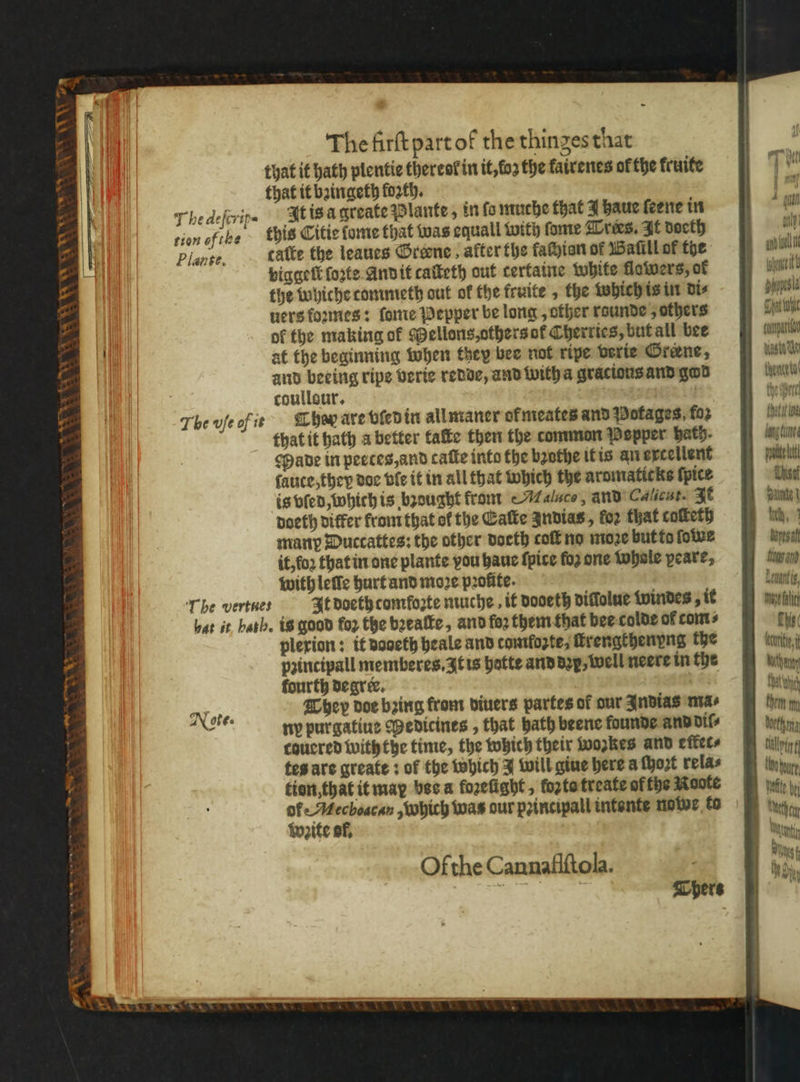 The first part of the thinges that
that it hath plentie thereof in it, for the fairenes of the fruite
that it bringeth forth.
The descrip-
tion of the
Plante.
It is a greate Plante, in so muche that I haue seene in
this Citie some that was equall with some Trées. It doeth
caste the leaues Gréene, after the fashion of Basill of the
biggest sorte. And it casteth out certaine white flowers, of
the whiche commeth out of the fruite, the which is in di-
uers formes: some Pepper be long, other rounde, others
of the making of Mellons, others of Cherries, but all bee
at the beginning when they bee not ripe verie Gréene,
and beeing ripe verie redde, and with a gracious and good
coullour.
The vse of it
They are vsed in all maner of meates and Potages, for
that it hath a better taste then the common Pepper hath.
Made in peeces, and caste into the brothe it is an excellent
sauce, they doe vse it in all that which the aromaticks spice
is vsed, which is brought from Maluco, and Calicut. It
doeth differ from that of the Easte Indias, for that costeth
many Duccattes: the other doeth cost no more but to sowe
it, for that in one plante you haue spice for one whole yeare,
with lesse hurt and more profite.
The vertues
hat it hath.
It doeth comforte muche, it dooeth dissolue windes, it
is good for the breaste, and for them that bee colde of com-
plexion: it dooeth heale and comforte, strengthenyng the
principall memberes. It is hotte and dry, well neere in the
fourth degrée.
Note.
They doe bring from diuers partes of our Indias ma-
ny purgatiue Medicines, that hath beene founde and dis-
couered with the time, the which their workes and effec-
tes are greate: of the which I will giue here a short rela-
tion, that it may bee a foresight, for to treate of the Roote
of Mechoacan, which was our principall intente nowe to
write of.
Of the Cannafistola.
There